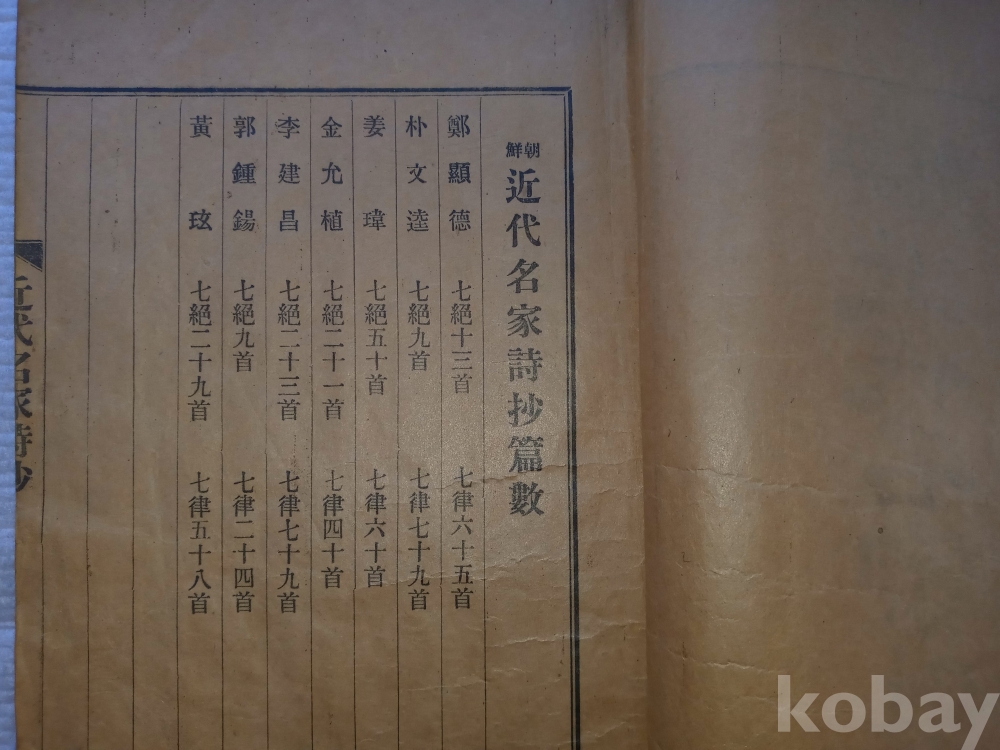 朝鮮近代名家詩抄篇數
鄭顯德 七絕十三首 七律六十五首
朴文逵 七絕九首 七律七十九首
姜瑋 七絕五十首 七律六十首
金允植 七絕二十一首 七律四十首
李建昌 七絕二十三首 七律七十九首
郭鍾錫 七絕九首 七律二十四首
黃玹 七絕二十九首 七律五十八首
近代名家詩抄
kobay